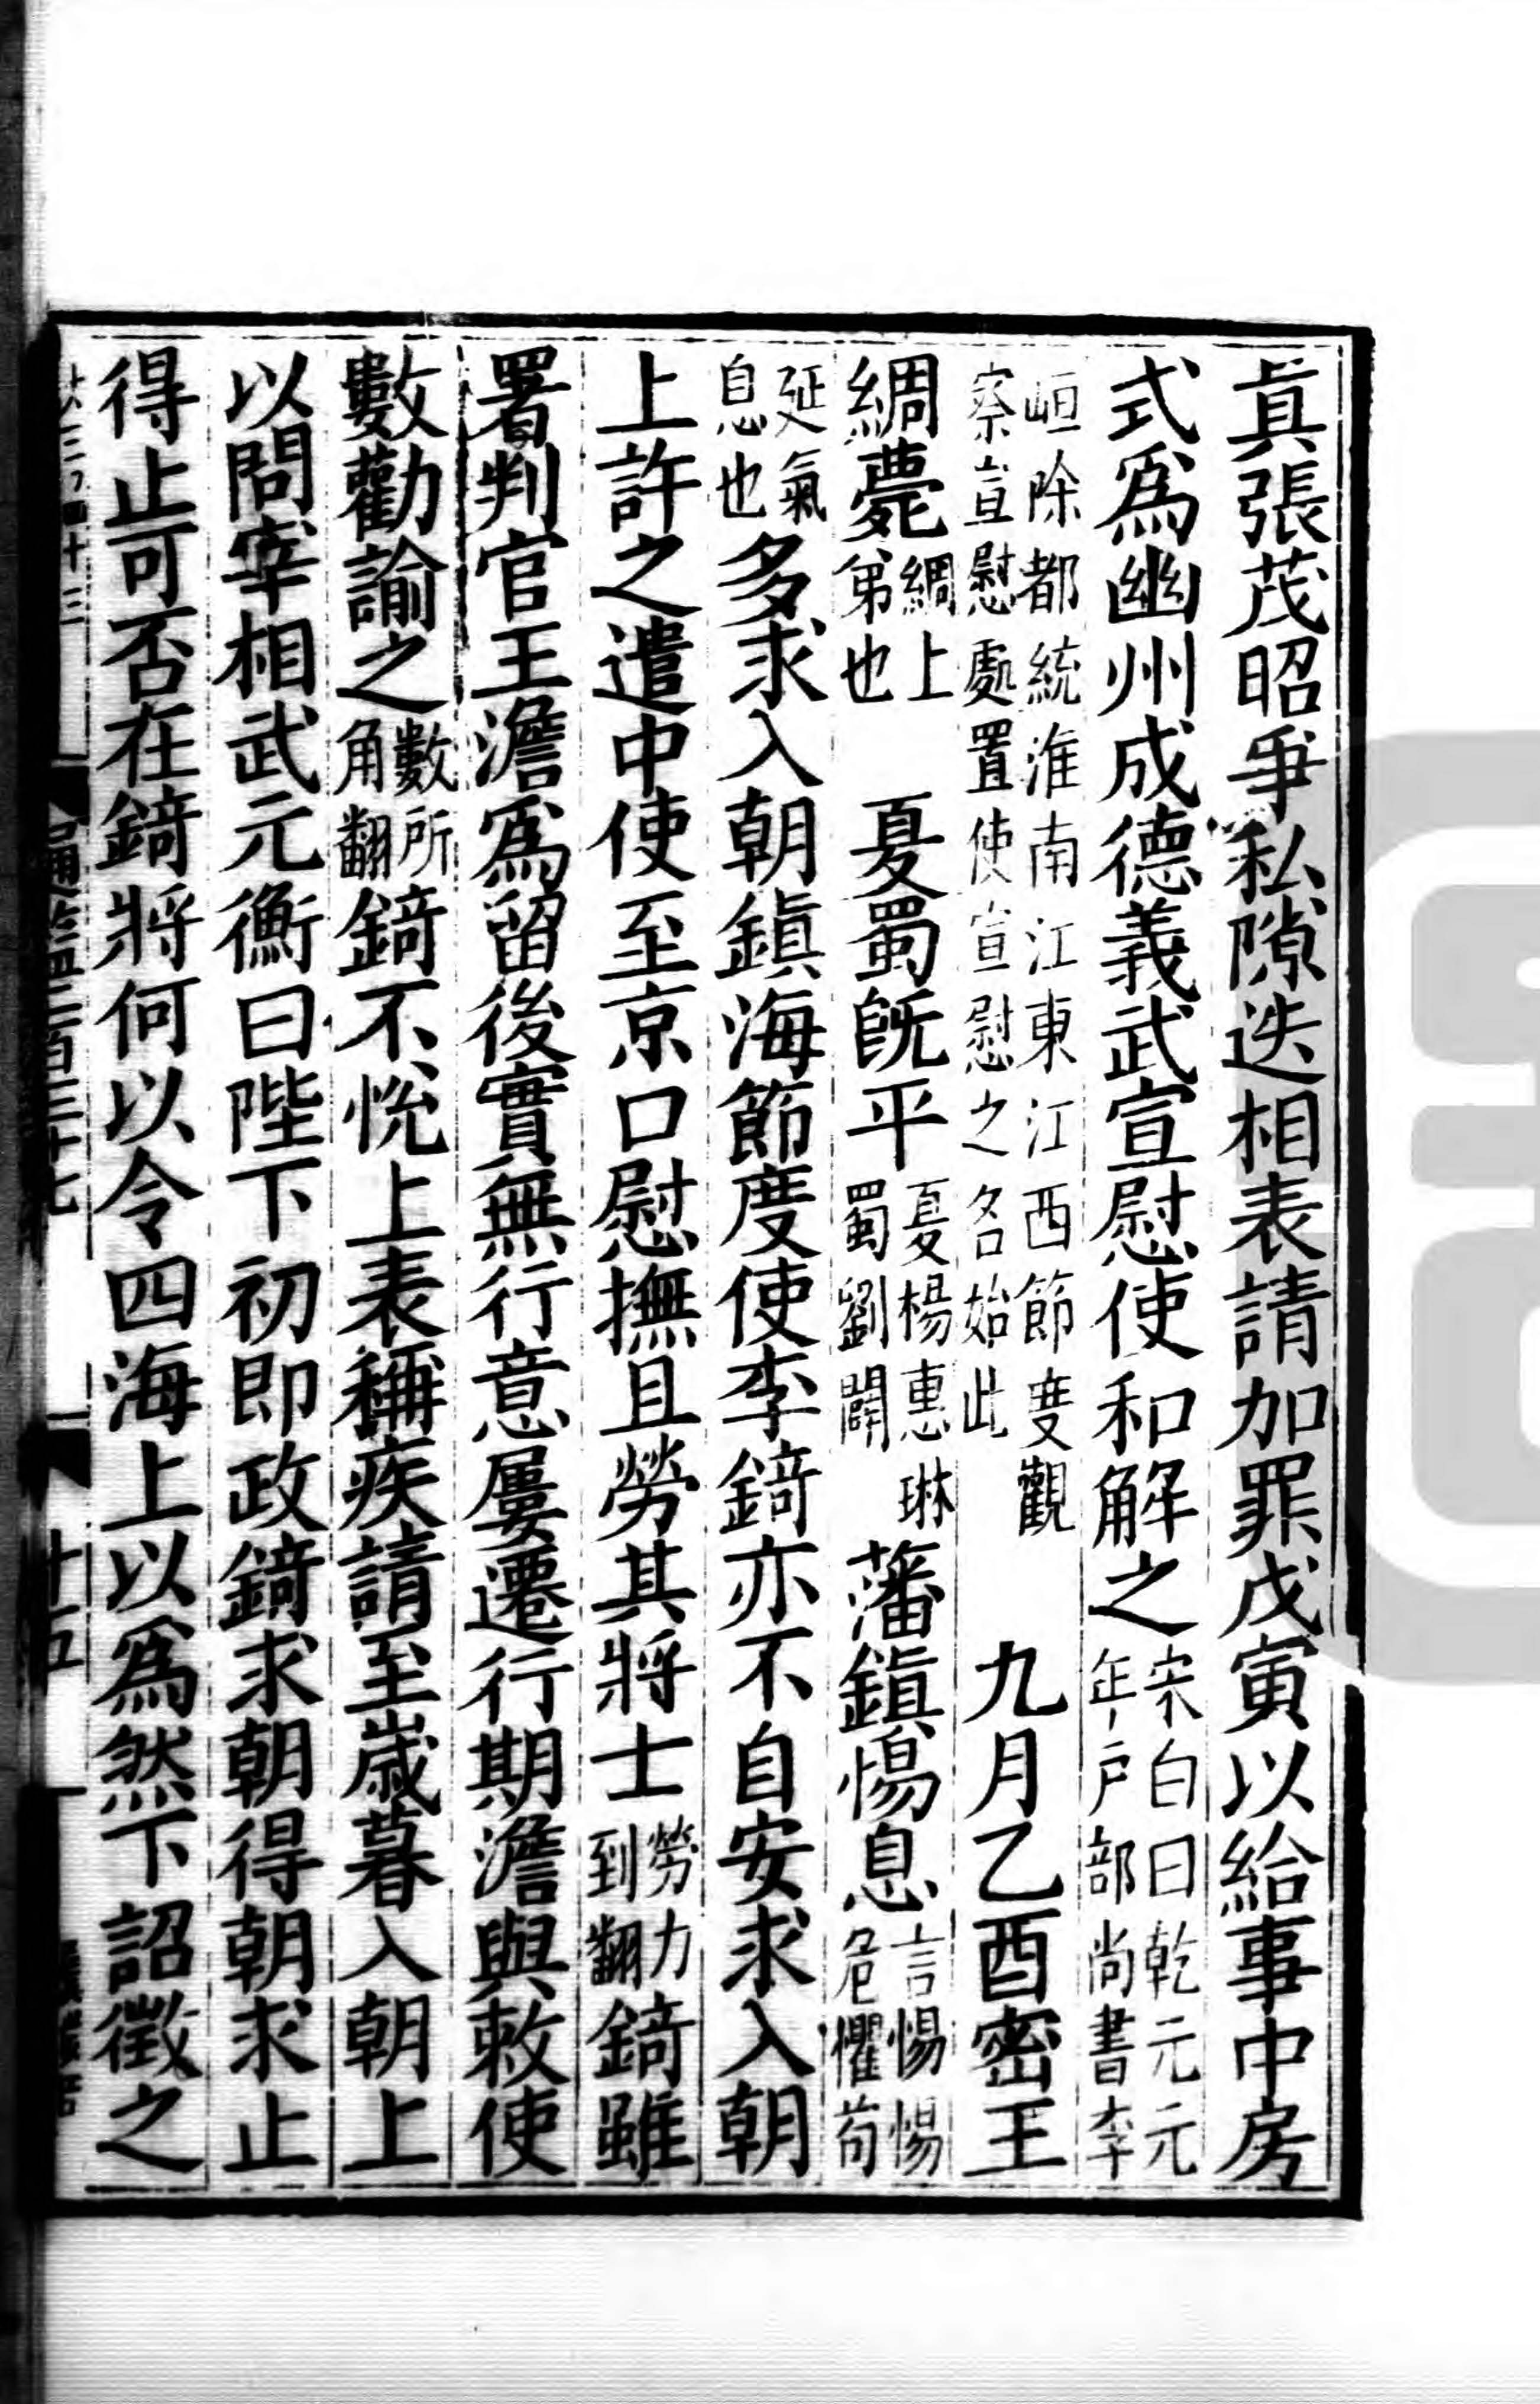 真張茂昭爭私隙迭相表請加罪戊寅以給事中房
式爲幽州成德義武宣慰使和解之宋白曰乾元元年戶部尚書李
峘除都統淮南江東江西節度觀察宣慰處置使宣慰之名始此　九月乙酉密王
綢薨綢上弟也　夏蜀旣平夏楊惠琳蜀劉闢　藩鎭惕息言惕惕危懼苟
延氣息也多求入朝鎭海節度使李錡亦不自安求入朝
上許之遣中使至京口慰撫且勞其將士勞力到翻錡雖
署判官王澹爲留後實無行意屢遷行期澹與敕使
數勸諭之數所角翻錡不悅上表稱疾請至歲暮入朝上
以問宰相武元衡曰陛下初即政錡求朝得朝求止
得止可否在錡將何以令四海上以爲然下詔徵之
通鑑二百三十七
十五